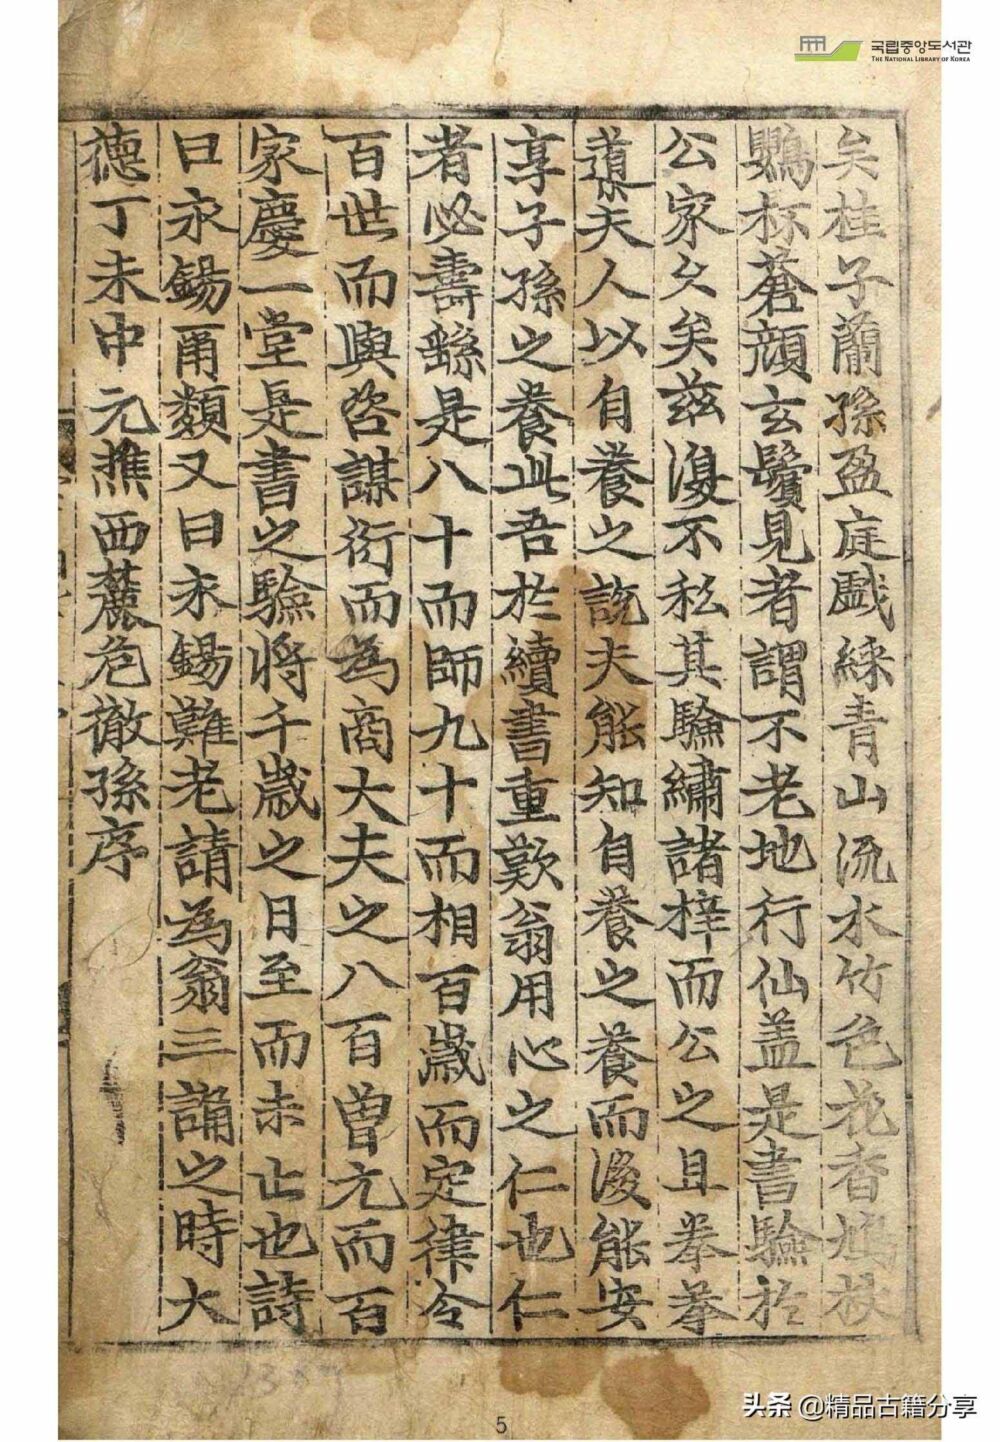 국립중앙도서관
THE NATIONAL LIBRARY OF KOREA
矣桂子蘭孫盈庭戲綵青山流水竹色花香鳩杖
鸚杯蒼顔玄鬢見者謂不老地行仙盖是書驗於
公家久矣兹復不私其驗繡諸梓而公之且拳拳
導夫人以自養之說夫能知自養之養而後能安
享子孫之養此吾於續書重歎翁用心之仁也仁
者必壽繇是八十而師九十而相百歲而定律令
百世而與咨謀衎而為商大夫之八百曾元而百
家慶一堂是書之驗將千歲之日至而未止也詩
曰永錫爾類又曰永錫難老請為翁三誦之時大
德丁未中元樵西麓危徹孫序
5
头条 @精品古籍分享